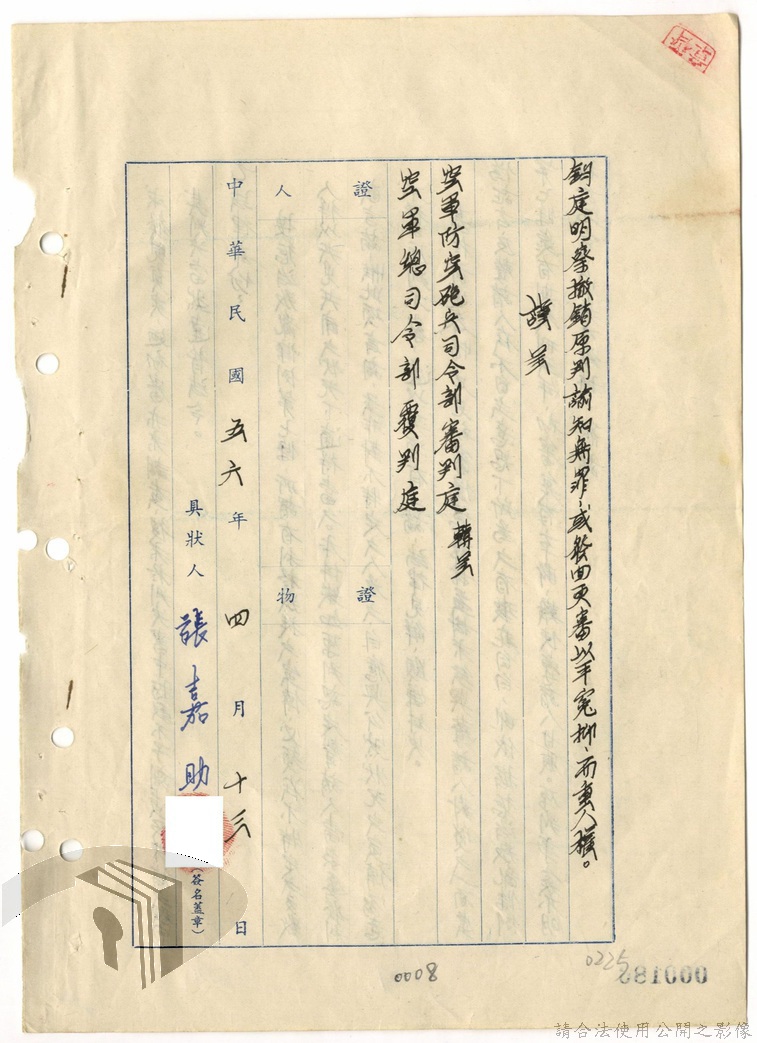 鈞庭明察撤銷原判諭知無罪，或發回更審以平冤抑，而重人權。
謹呈
空軍防空砲兵司令部審判庭 轉呈
空軍總司令部覆判庭
證人
證物
中華民國五六年四月十三日
具狀人 張嘉助
（簽名蓋章）
0008
0225
000182
請合法使用公開之影像